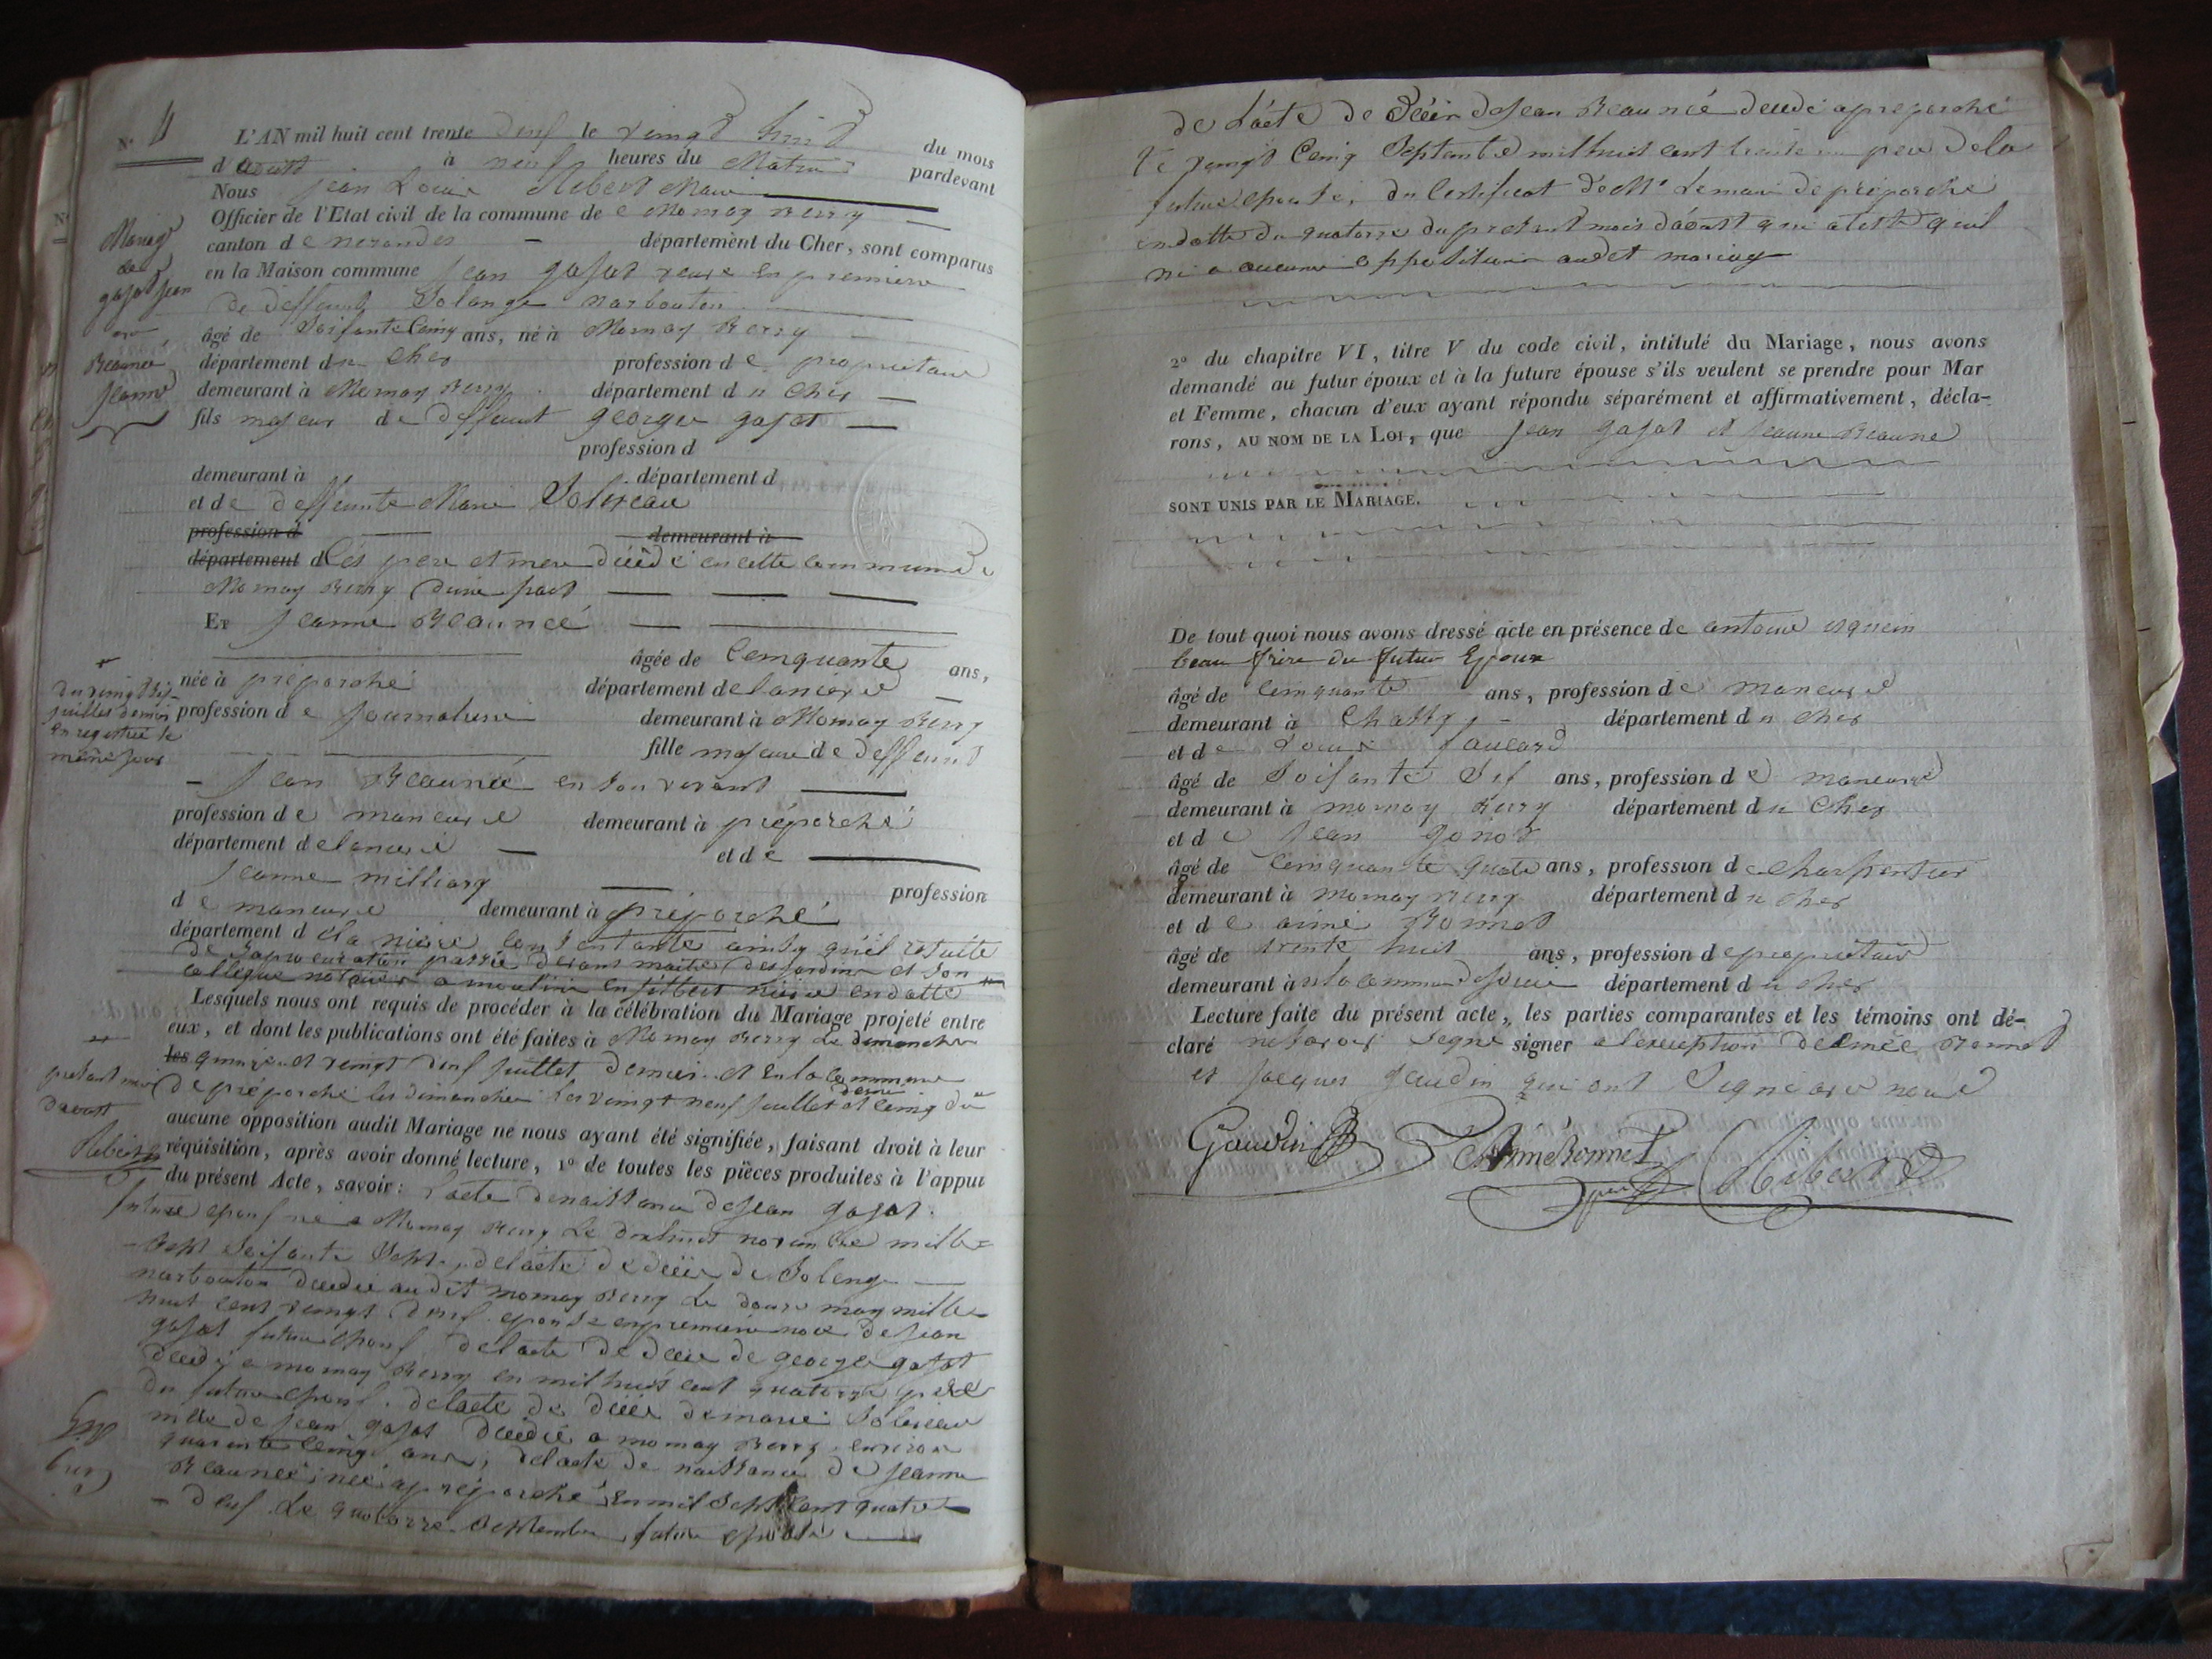 N° 4
L'AN mil huit cent trente deuf le vingt huit du mois
d'aoust à neuf heures du Matin pardevant
Nous jean Louis Ribert Maire
Officier de l'Etat civil de la commune de Mornay Berry
canton de nerondes département du Cher, sont comparus
en la Maison commune jean gajat veuve en premiere
de deffunt Solange narbouton
âgé de Soisante Cinq ans, né à Mornay Berry
département du Cher profession de propriétaire
demeurant à Mornay Berry département du Cher
fils majeur de deffunt george gajat
profession d
demeurant à département d
et de deffeunte Marie Solireau
profession d demeurant à
département d Ces pere et mere décédé en cette commune de
Mornay Berry d'une part
Et Jeanne Beauneé
âgée de Cenquante ans,
née à préporché département de la niévre
profession de journaliere demeurant à Mornay Berry
fille majeure de deffeunt
jean Beauneé en son vivant
profession de maneuvre demeurant à préporché
département de la nievre et de
Jeanne milliary profession
de maneuvre demeurant à préporché
département de la nièvre consentante ainsy qu'il résulte
de Sa procuration passée devant maitre desjardins et son
collegue notaires a moulins en gilbert niévre en datte
Lesquels nous ont requis de procéder à la célébration du Mariage projeté entre
eux, et dont les publications ont été faites à Mornay Berry Le dimanche
les quinze et vingt deuf juillet dernier et en la commune
de préporché les dimanches les vingt neuf juillet dernier et cinq du
aucune opposition audit Mariage ne nous ayant été signifiée, faisant droit à leur
réquisition, après avoir donné lecture, 1° de toutes les pièces produites à l'appui
du présent Acte, savoir: l'acte de naissance de jean gajat
future epouf né a Mornay Berry Le dixhuit novembre mille
Sept Soisante Sept, de l'acte de décés de Solenge
narbouton décédée au dit mornay Berry Le douze may mille
huit cent vingt deuf epouse en premiere noce de jean
gajat future epouf, de l'acte de décés de george gajat
décédé a mornay Berry en mil huit cent quatorze père
du future epouf. de l'acte de décés de marie Solireau
mere de jean gajat décédée a mornay Berry environ
quarante cinq ans, de l'acte de naissance de Jeanne
Beauneé née a préporché en mil Sept cent quatre
deuf Le quatorze Septembre future epouse
Mariage
de
gajat jean
et
Beauneé
Jeanne
du vingt Sis
juillet dernier
Enregistrée le
même jour
présent mois
d'aoust
Ribert
de L'acte de Décés de Jean Beauneé décédé a preporché
Le vingt Cenq Septembre mil huit cent trente un pere de la
future epouse, du Certificat de Mr Le maire de préporché
en datte du quatorze du présent mois d'aoust qui ateste quil
ni a aucune opposition audit mariage
2° du chapitre VI, titre V du code civil, intitulé du Mariage, nous avons
demandé au futur époux et à la future épouse s'ils veulent se prendre pour Mar
et Femme, chacun d'eux ayant répondu séparément et affirmativement, décla-
rons, AU NOM DE LA LOI, que jean gajat et Jeanne Beauné
SONT UNIS PAR LE MARIAGE.
De tout quoi nous avons dressé acte en présence de antoine
beau frère du futur Epoux
âgé de Cenquante ans, profession de maneuvre
demeurant à Chassy département du Cher
et de Louis
âgé de Soisante Sis ans, profession de maneuvre
demeurant à mornay Berry département du Cher
et de jean gonot
âgé de Cenquante quatre ans, profession de Charpentier
demeurant à mornay Berry département du Cher
et de aimé Bonnet
âgé de trente huit ans, profession de propriétaire
demeurant à la commune de département du Cher
Lecture faite du présent acte, les parties comparantes et les témoins ont dé-
claré ne Savoir Signé signer a lexception de aimée Bonnet
et jacques gaudin qui ont Signé avec nous
Gaudin Aimé Bonnet
Ribert